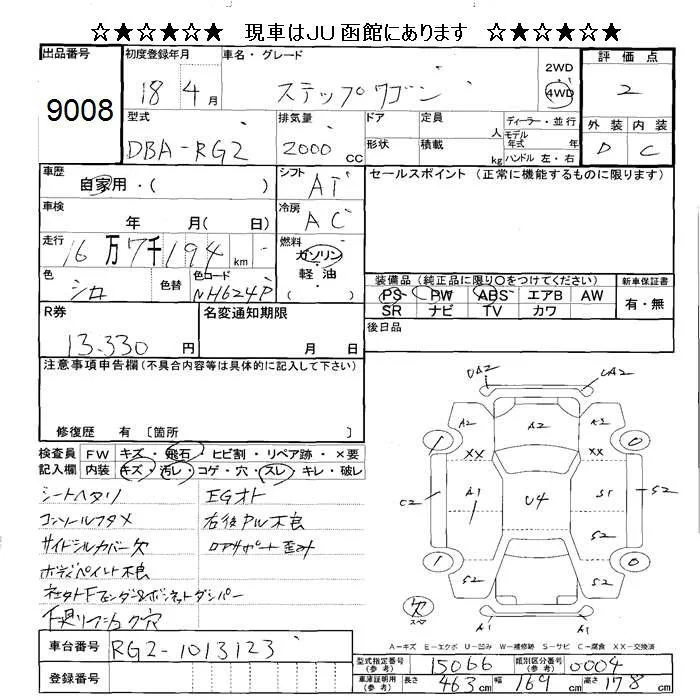 ☆★☆★☆★ 現車はJU函館にあります ☆★☆★☆★
出品番号 9008
初度登録年月 18 4月
車名・グレード ステップワゴン
2WD 4WD
評価点 2
外装 内装
D C
型式 DBA-RG2
排気量 2000 cc
ドア 定員 人
形状 積載 kg
ディーラー・並行
モデル年式 年
ハンドル 左・右
車歴 自家用・( )
シフト AT
セールスポイント (正常に機能するものに限ります)
車検 年 月( 日)
冷房 AC
走行 16万7千194km
燃料 ガソリン・軽油 ( )
色 シロ 色替
色コード NH624P
装備品 (純正品に限り○をつけてください)
PS PW ABS エアB AW
SR ナビ TV カワ
新車保証書 有・無
R券 13.330 円
名変通知期限 月 日
後日品
注意事項申告欄(不具合内容等は具体的に記入して下さい)
修復歴 有 〔箇所 〕
検査員記入欄
FW キズ・飛石・ヒビ割・リペア跡・×要
内装 キズ・汚レ・コゲ・穴・スレ・キレ・破レ
シートヘタリ EGオト
コンソールフタメ 右後Pル不良
サイドシルカバー欠 ロアサポート歪み
ボディペイント不良
車台番号 RG2-1013123
登録番号
UA2 UA2
A2 A2 A2
XX XX
1 1
C2 A1 U4 S1 S2
S2
1 0
S2 S2
欠 スペア
A1 A1
A-キズ E-エクボ U-凹み W-補修跡 S-サビ C-腐食 XX-交換済
型式指定番号(参考) 15066 類別区分番号(参考) 0004
車庫証明用(参考) 長さ 463cm 幅 169cm 高さ 178cm